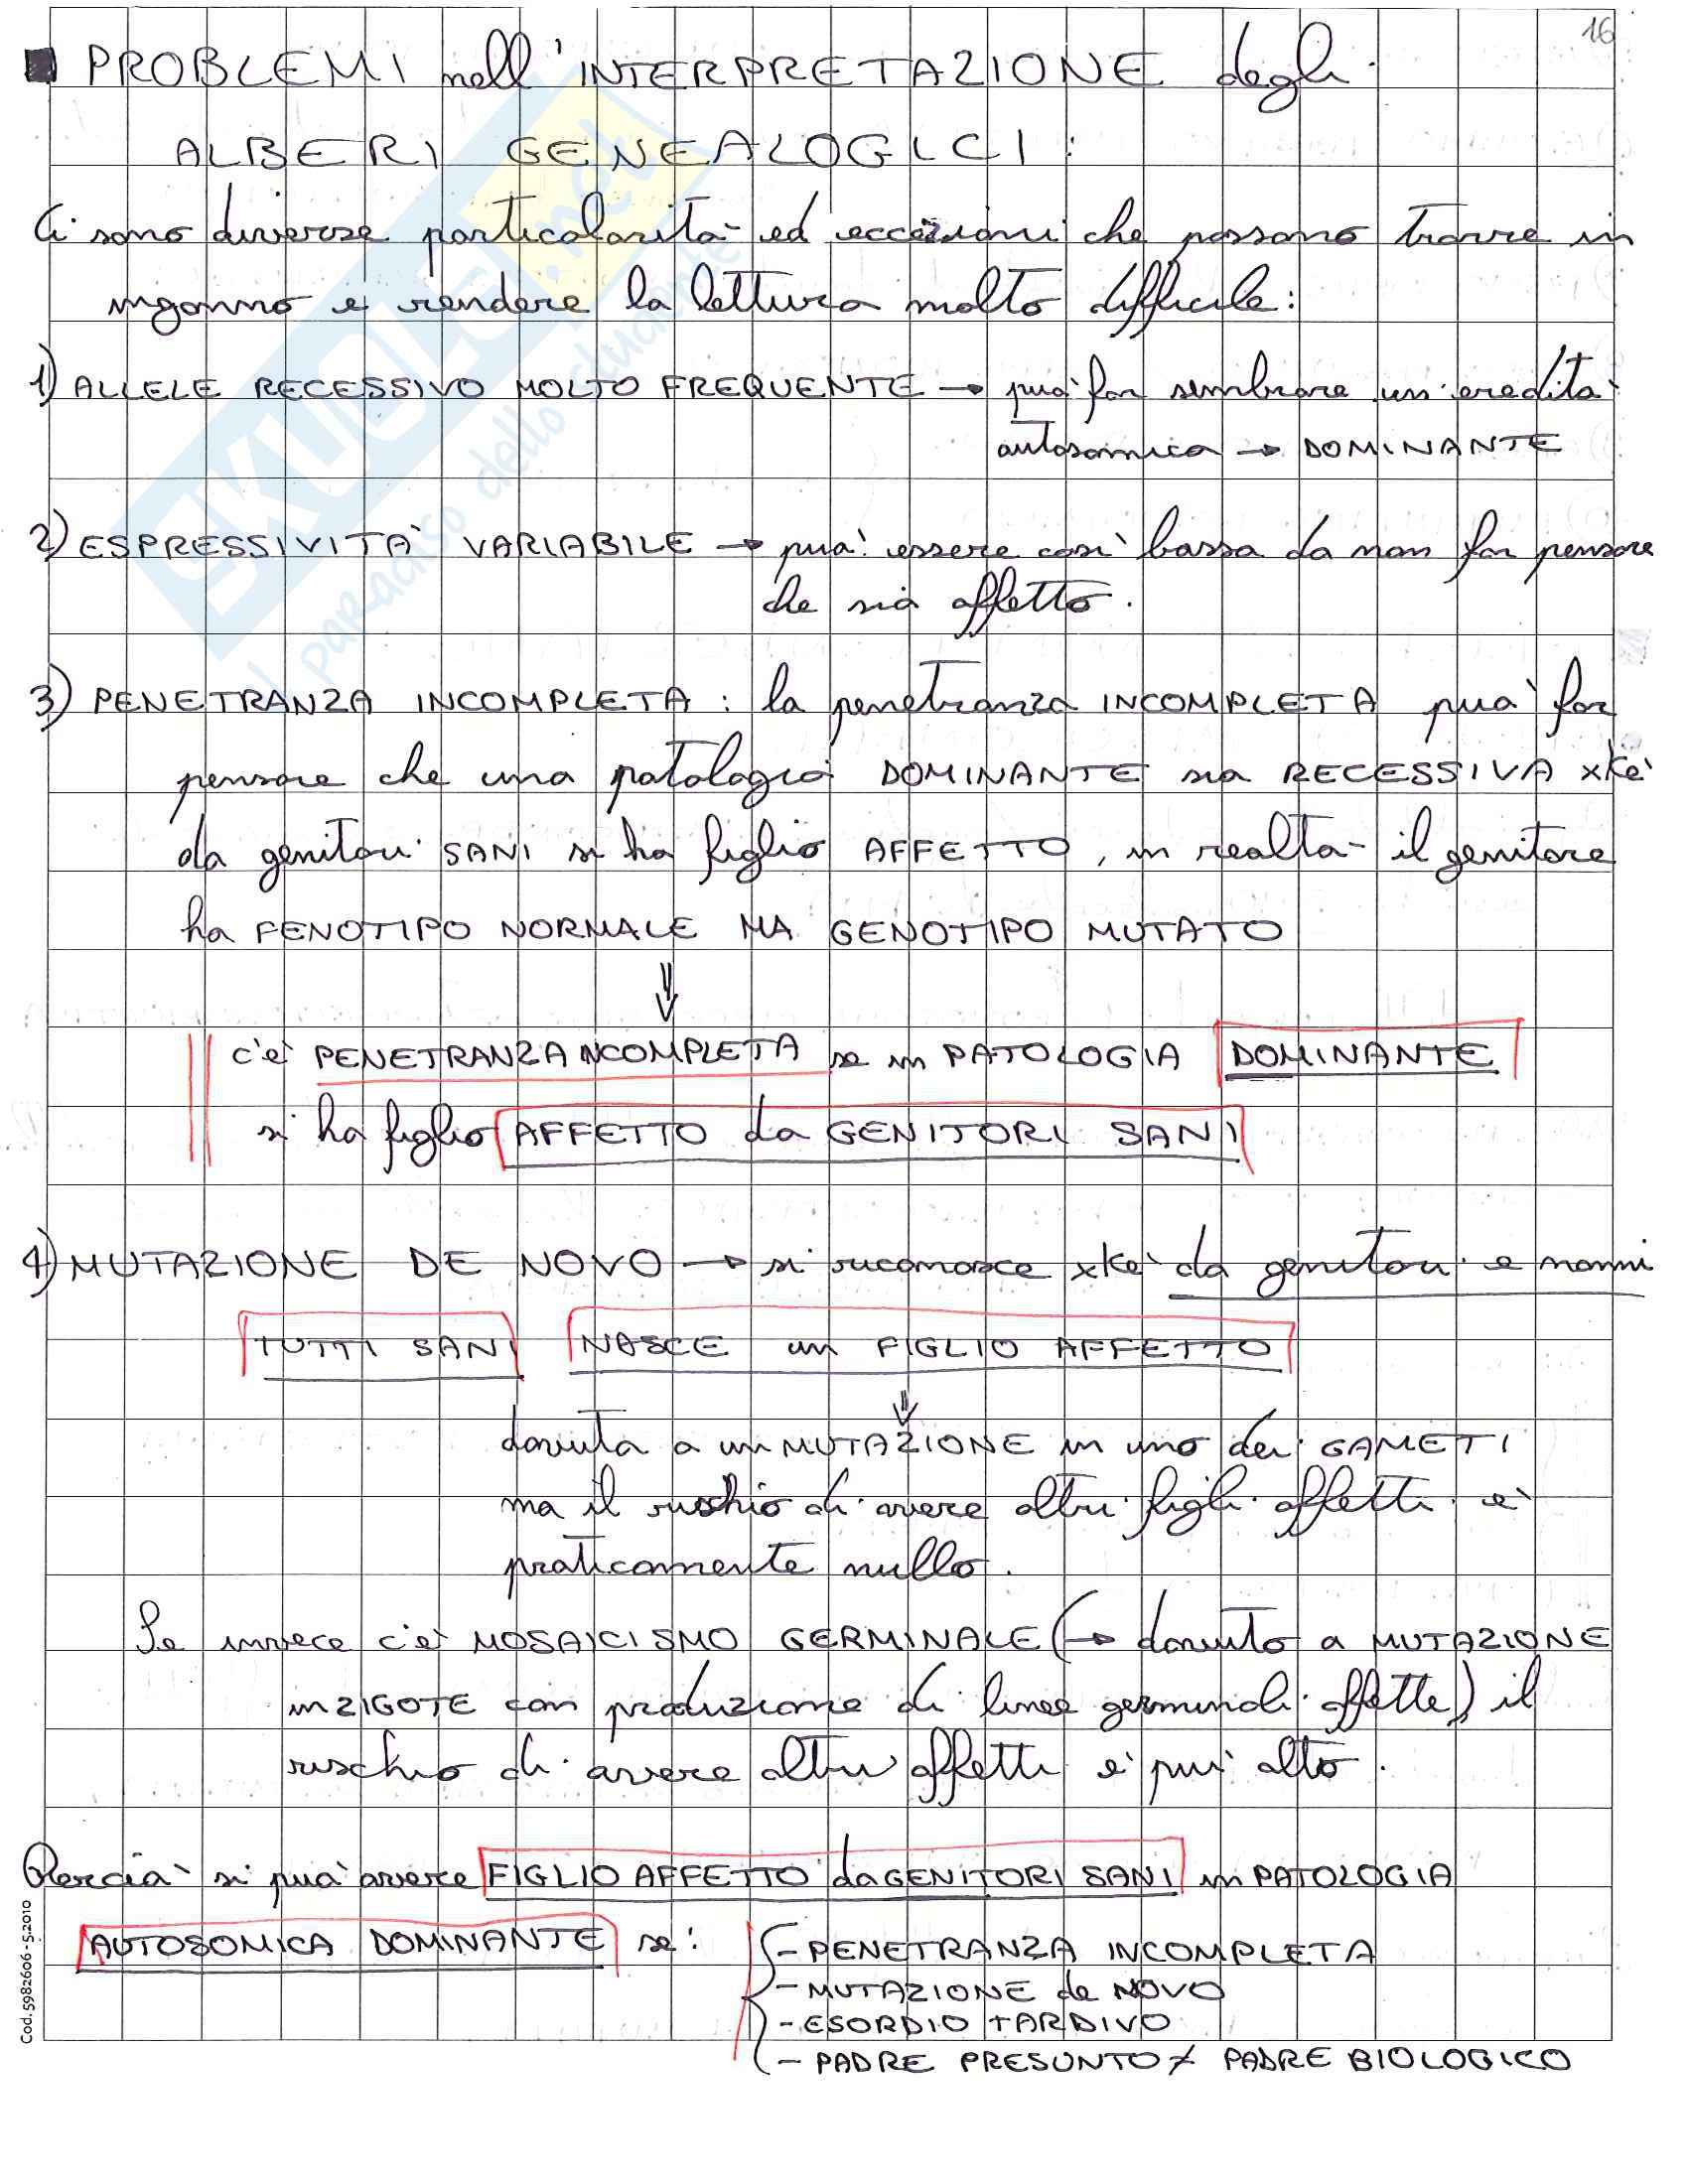 16
■ PROBLEMI nell'INTERPRETAZIONE degli
ALBERI GENEALOGICI:
Ci sono diverse particolarità ed eccezioni che possono trarre in
inganno e rendere la lettura molto difficile:
1) ALLELE RECESSIVO MOLTO FREQUENTE → può far sembrare un'eredità
autosomica → DOMINANTE
2) ESPRESSIVITÀ VARIABILE → può essere così bassa da non far pensare
che sia affetto.
3) PENETRANZA INCOMPLETA : la penetranza INCOMPLETA può far
pensare che una patologia DOMINANTE sia RECESSIVA xkè
da genitori SANI si ha figlio AFFETTO, in realtà il genitore
ha FENOTIPO NORMALE MA GENOTIPO MUTATO
⇓
c'è PENETRANZA INCOMPLETA se in PATOLOGIA DOMINANTE
si ha figlio AFFETTO da GENITORI SANI
4) MUTAZIONE DE NOVO → si riconosce xkè da genitori e nonni
TUTTI SANI NASCE un FIGLIO AFFETTO
⇓
dovuta a un MUTAZIONE in uno dei GAMETI
ma il rischio di avere altri figli affetti è
praticamente nullo.
Se invece c'è MOSAICISMO GERMINALE (→ dovuto a MUTAZIONE
in ZIGOTE con produzione di linee germinali affette) il
rischio di avere altri affetti è più alto.
Perciò si può avere FIGLIO AFFETTO da GENITORI SANI in PATOLOGIA
AUTOSOMICA DOMINANTE se:
- PENETRANZA INCOMPLETA
- MUTAZIONE de NOVO
- ESORDIO TARDIVO
- PADRE PRESUNTO ≠ PADRE BIOLOGICO
Cod. 5982606 - 5.2010
SKUOLA.net
il paradiso dello studente